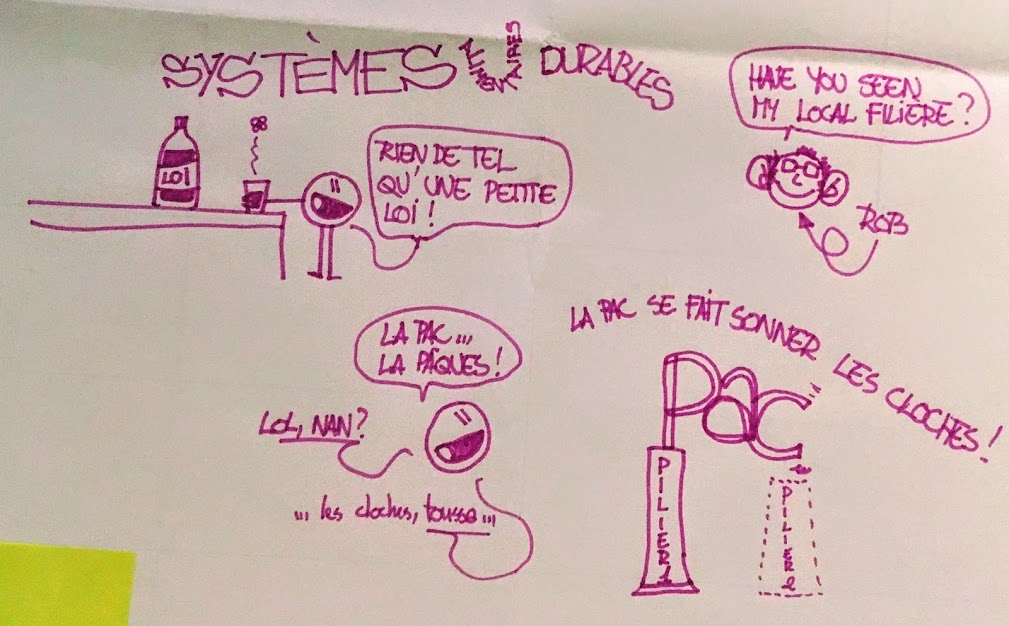 SYSTÈMES ALIMENTAIRES DURABLES
HAVE YOU SEEN
MY LOCAL FILIÈRE?
LOI
RIEN DE TEL
QU'UNE PETITE
LOI!
ROB
LA PAC...
LA PÂQUES!
LOL, NAN?
... les cloches, tousse...
LA PAC SE FAIT SONNER LES CLOCHES!
PAC
PILIER1
PILIER2